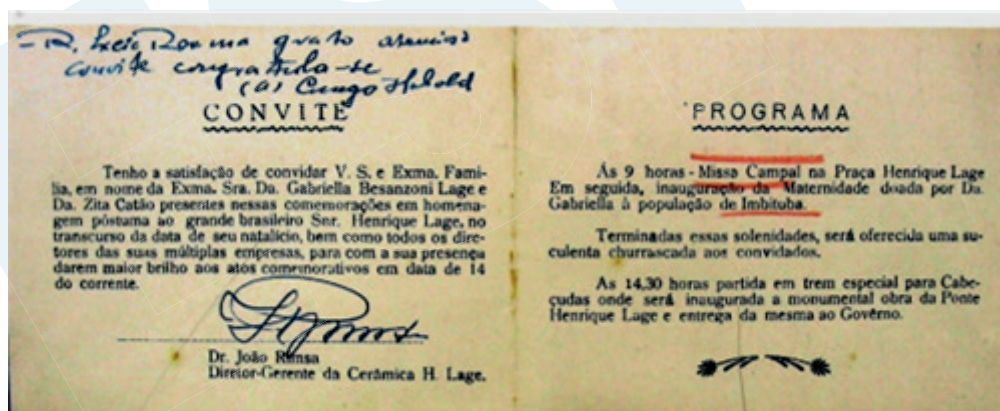 R. grato
convite congratula-se
(a)
CONVITE
Tenho a satisfação de convidar V. S. e Exma. Famí-
lia, em nome da Exma. Sra. Da. Gabriella Besanzoni Lage e
Da. Zita Catão presentes nessas comemorações em homena-
gem póstuma ao grande brasileiro Snr. Henrique Lage, no
transcurso da data de seu natalício, bem como todos os dire-
tores das suas múltiplas empresas, para com a sua presença
darem maior brilho aos atos comemorativos em data de 14
do corrente.
Dr. João Rimsa
Diretor-Gerente da Cerâmica H. Lage.
PROGRAMA
Ás 9 horas - Missa Campal na Praça Henrique Lage
Em seguida, inauguração da Maternidade doada por Da.
Gabriella à população de Imbituba.
Terminadas essas solenidades, será oferecida uma su-
culenta churrascada aos convidados.
As 14,30 horas partida em trem especial para Cabe-
çudas onde será inaugurada a monumental obra da Ponte
Henrique Lage e entrega da mesma ao Govêrno.